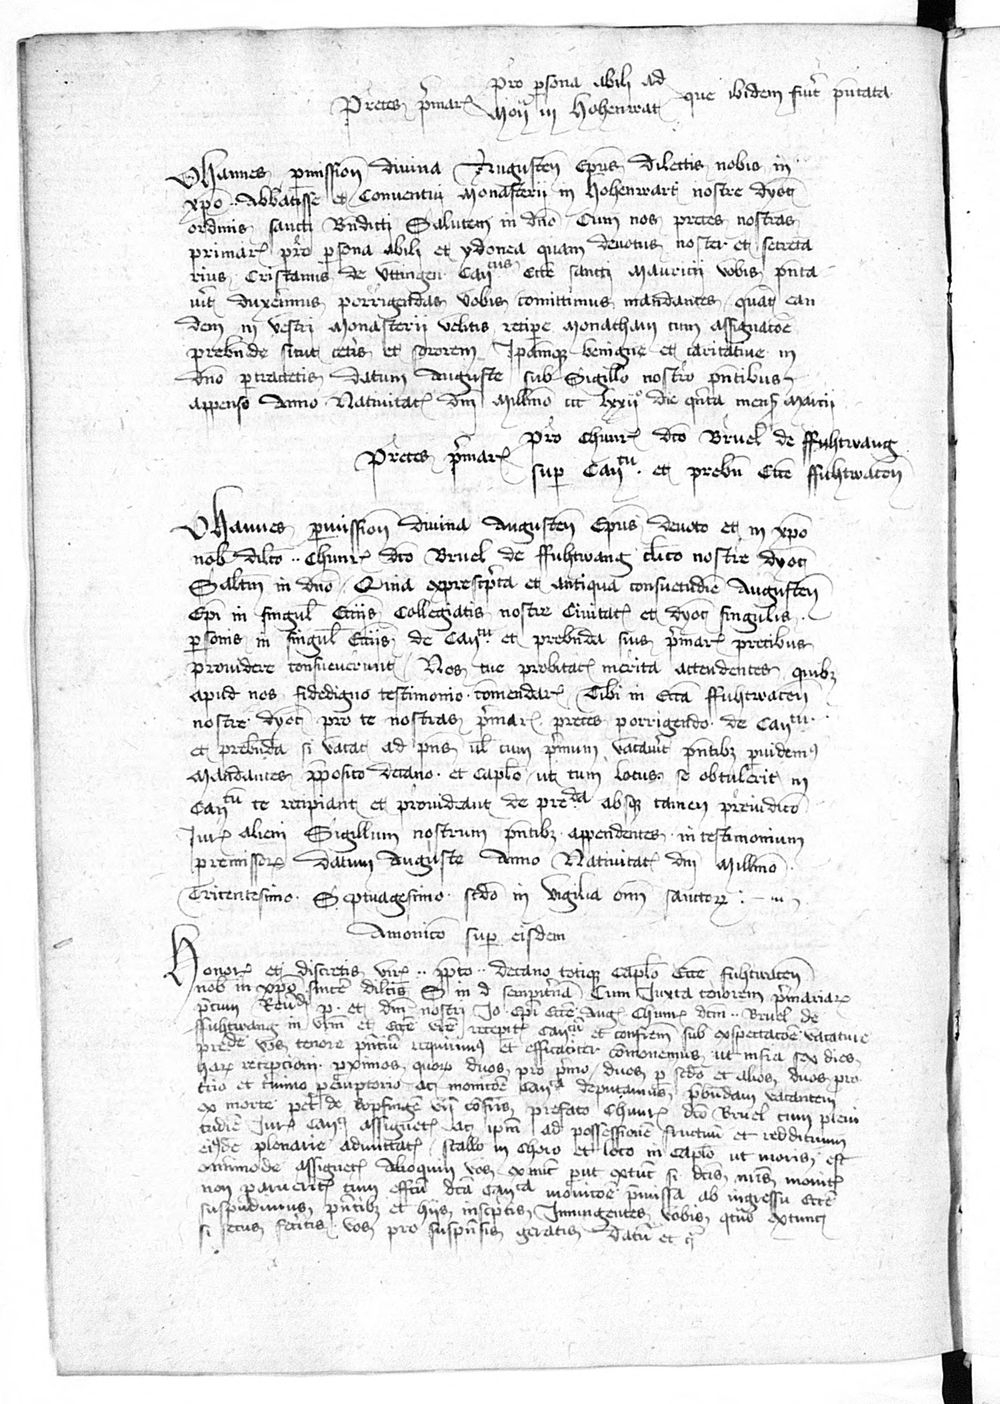 Pro p̄sona abili ad
Preces p̄mar̄ Moñ in Hohenwart que ibidem fuit p̄ntata
Johannes p̄missioñ divina Augusteñ Ep̄us dilectis nobis in
xp̄o ·· Abbatisse et Conventui Monasterii in Hohenwart nostre dyoc̄
ordinis sancti Bn̄dicti Salutem in dn̄o Cum nos preces nostras
primar̄ pro p̄sona abili et ydonea quam devotus noster et secreta
rius Cristanus de Uttingen Can̄cus Ecc̄e sancti Mauricii vobis pn̄ta
vit duxerimus porrigendas vobis committimus mandantes quat̄ ean
dem in vestri Monasterii velitis recipe Monacham cum assignacōe
prebende sicut cet̄is et sororem Ip̄amqз benigne et caritative in
dn̄o p̄tractetis datum Auguste sub Sigillo nostro pn̄tibus
appenso Anno Nativitat̄ dn̄i Mill̄mo ccc lxxii° die qn̄ta mens̄ Marcii
Pro Chunr̄ dc̄o Bruel de ffuhtwang
Preces p̄mar̄ sup Can̄tu · et prebn̄ Ecc̄e ffuhtwaceñ
Johannes p̄missioñ divina Augusteñ Ep̄us devoto et in xp̄o
nob̄ dilc̄o ·· Chunr̄ dc̄o Bruel de ffuhtwang cl̄ico nostre dyoc̄
Salt̄m in dn̄o Quia ex prescp̄ta et antiqua consuetudīe Augusteñ
Ep̄i in singul̄ Ecc̄iis Collegiatis nostre Civitat̄ et dyoc̄ singulis
p̄sonis in singul̄ Ecc̄iis de Can̄tu · et prebenda suis p̄mar̄ precibus
providere consueverunt Nos tue probitat̄ merita attendentes quibз
apud nos fidedigno testimonio comendar̄ Tibi in Ecc̄a ffuhtwaceñ
nostre dyoc̄ pro te nostras p̄mar̄ preces porrigendo de Can̄tu ·
et prebenda si vacat ad pn̄s ul̄ cum p̄mum vacav̄it pn̄tibз p̄videmꝰ
Mandantes p̄posito decano et Capl̄o ut cum locus se obtulerit in
Can̄tu te recipiant et provideant de pre᷒da absqз tamen preiudicio
Jur̄ alieni Sigillum nostrum pn̄tibз appendentes in testimonium
premissor̄ datum Auguste Anno Nativitat̄ dn̄i Mill̄mo
Tricentesimo Septuagesimo sc̄do in vigilia om̄i sanctor̄
Amonic̄o sup eisdem
Honor̄ et discretis vir̄ ·· pp̄to ·· decano totiqз Capl̄o Ecc̄e fuhtwaceñ
nob̄ in xp̄o sincē dilc̄is S in d sempit̄nā Cum Juxta tenorem p̄mariar̄
p̄cum Rev̄di p · et dn̄i nostri Jo Ep̄i Ecc̄e Auḡ Chunr̄ dc̄m ·· Bruel de
ffuhtwang in vr̄m et Ecc̄e vr̄e recepit̄ Can̄cū et confrem̄ sub exspectacōe vacature
prebēde vos tenore pn̄ciū requirimꝰ et efficaciter comonemus ut infra sex dies
har̄ recepcioni p̄ximos quor̄ duos pro p̄mo duos p sc̄do et alios duos pro
tercio et t̄mino pemptorio ac monic̄oe can̄ca deputamus p̄bendam vacantem
ex morte pet̄ de Kopfingē vr̄i cōfris prefato Chunr̄ dc̄o Bruel cum pleni
tudīe Jur̄ can̄ci assignet̄ ac ip̄m ad possessionē fructuū et reddituum
eiꝰde plenarie admittat̄ stallo in Choro et loco in Capl̄o ut moris est
omnimode assignet̄ Alioquin vos ex nūc put extūc si dc̄is nr̄is monit̄
non parverit̄ cum effc̄u dc̄a Can̄ca monic̄oe p̄missa ab ingressu Ecc̄e
suspendimus pn̄tibз et hiis in scp̄tis Iniungentes vobis qd̄ extunc
si secus fec̄itis vos pro suspn̄sis geratis Datū et c̄